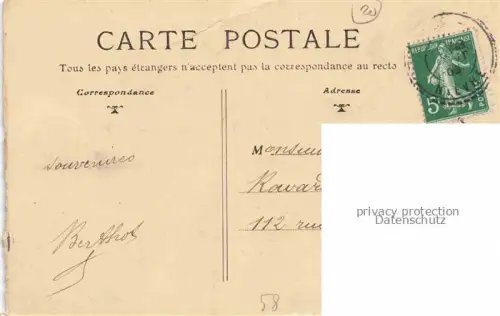 20
CARTE POSTALE
Tous les pays étrangers n'acceptent pas la correspondance au recto
Correspondance
Adresse
REPUBLIQUE FRANÇAISE
5
souvenirs
Monsieu
112 rue
Berthot
privacy protection
Datenschutz
58